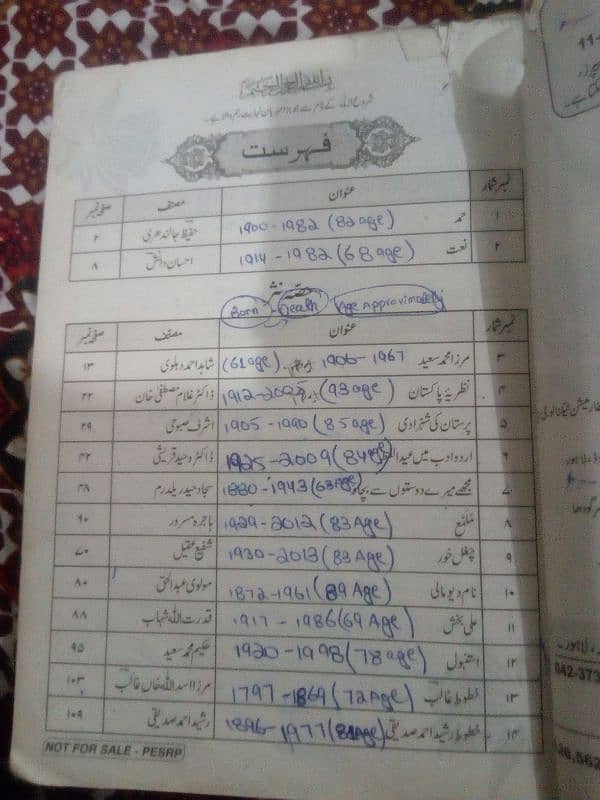 بسم اللہ الرحمن الرحیم
شروع اللہ کے نام سے جو بڑا مہربان نہایت رحم والا ہے۔
فہرست
نمبر شمار عنوان مصنف صفحہ نمبر
۱ حمد 1900-1982 (82 age) حفیظ جالندھری ۲
۲ نعت 1914-1982 (68 age) احسان دانش ۸
حصہ نثر
Born - Death (Age Approximately)
نمبر شمار عنوان مصنف صفحہ نمبر
۳ مرزا محمد سعید 1906-1967 (61 age) شاہد احمد دہلوی ۱۳
۴ نظریۂ پاکستان 1912-2005 (93 age) ڈاکٹر غلام مصطفیٰ خان ۲۲
۵ پرستان کی شہزادی 1905-1990 (85 age) اشرف صبوحی ۲۹
۶ اردو ادب میں عید 1925-2009 (84 age) ڈاکٹر وحید قریشی ۴۲
۷ مجھے میرے دوستوں سے بچاؤ 1880-1943 (63 Age) سجاد حیدر یلدرم ۴۸
۸ ملمع 1929-2012 (83 Age) ہاجرہ مسرور ۶۰
۹ چغل خور 1930-2013 (83 Age) شفیع عقیل ۷۰
۱۰ نام دیو مالی 1872-1961 (89 Age) مولوی عبدالحق ۸۰
۱۱ علی بخش 1917-1986 (69 Age) قدرت اللہ شہاب ۸۸
۱۲ استنبول 1920-1998 (78 age) حکیم محمد سعید ۹۵
۱۳ خطوط غالب 1797-1869 (72 Age) مرزا اسد اللہ خاں غالب ۱۰۳
۱۴ خطوط رشید احمد صدیقی 1896-1977 (81 Age) رشید احمد صدیقی ۱۰۹
NOT FOR SALE - PESRP
042-373